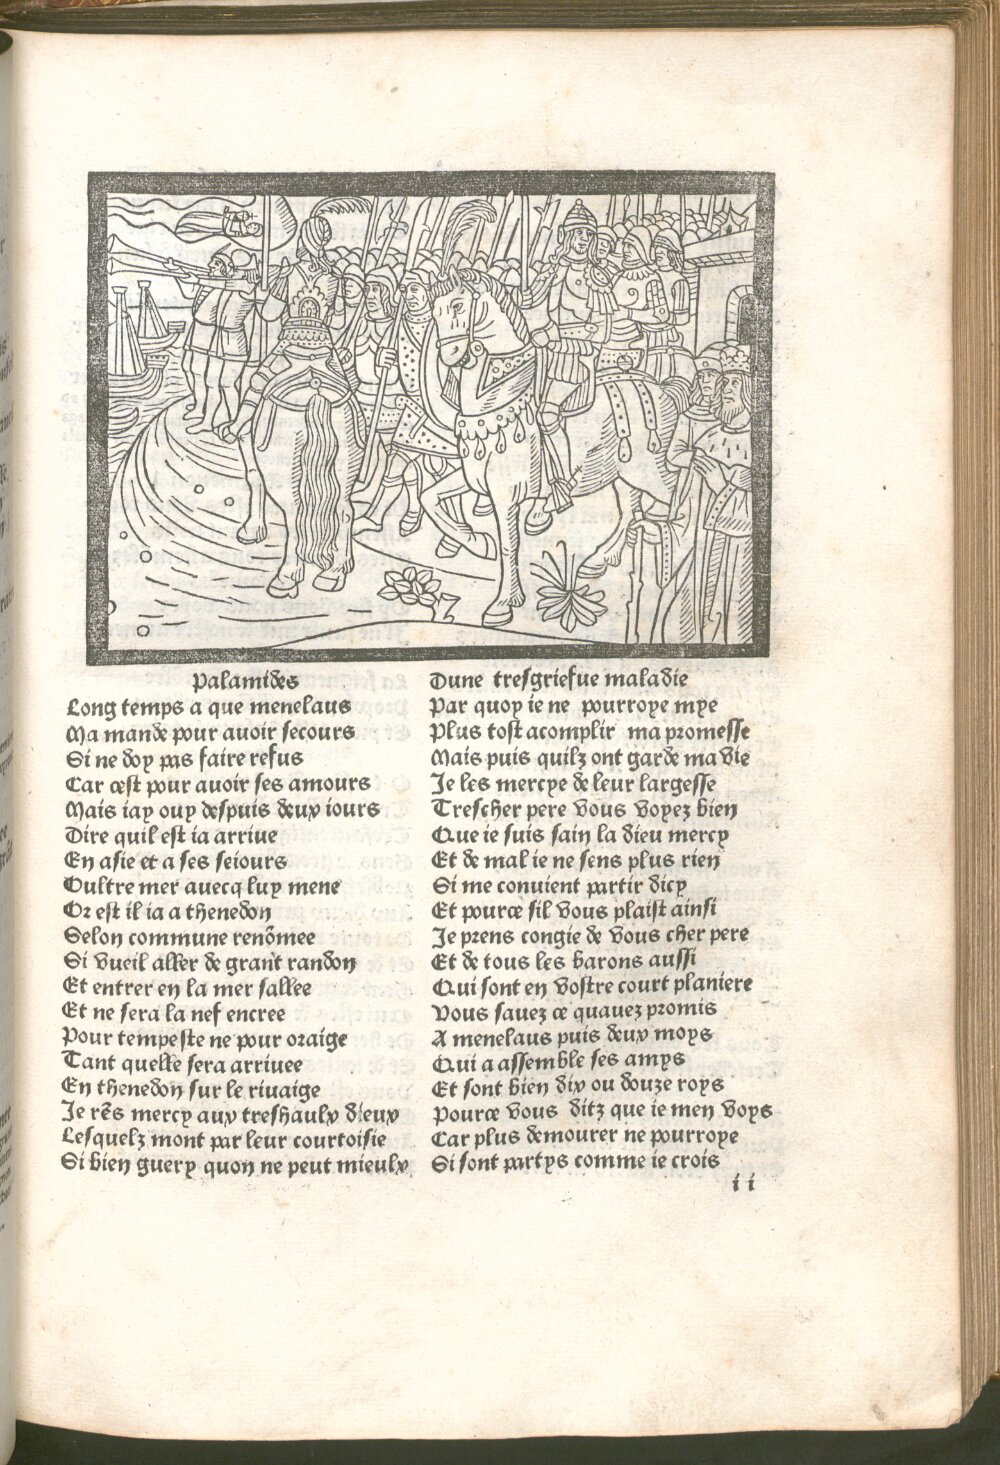 Palamides
Long temps a que menelaus
Ma mande pour auoir secours
Si ne doy pas faire refus
Car cest pour auoir ses amours
Mais iay ouy despuis deux iours
Dire quil est ia arriue
En asie et a ses seiours
Oultre mer auecq luy mene
Or est il ia a thenedon
Selon commune renõmee
Si vueil aller de grant randon
Et entrer en la mer sallee
Et ne sera la nef encree
Pour tempeste ne pour oraige
Tant quelle sera arriuee
En thenedon sur le riuaige
Je rẽs mercy aux treshaulx dieux
Lesquelz mont par leur courtoisie
Si bien guery quon ne peut mieulx
Dune tresgriefue maladie
Par quoy ie ne pourroye mye
Plus tost acomplir ma promesse
Mais puis quilz ont garde ma vie
Je les mercye de leur largesse
Trescher pere vous voyez bien
Que ie suis sain la dieu mercy
Et de mal ie ne sens plus rien
Si me conuient partir dicy
Et pource sil vous plaist ainsi
Je prens congie de vous cher pere
Et de tous les barons aussi
Qui sont en vostre court planiere
Vous sauez ce quauez promis
A menelaus puis deux moys
Qui a assemble ses amys
Et sont bien dix ou douze roys
Pource vous ditz que ie men voys
Car plus demourer ne pourroye
Si sont partys comme ie crois
i i